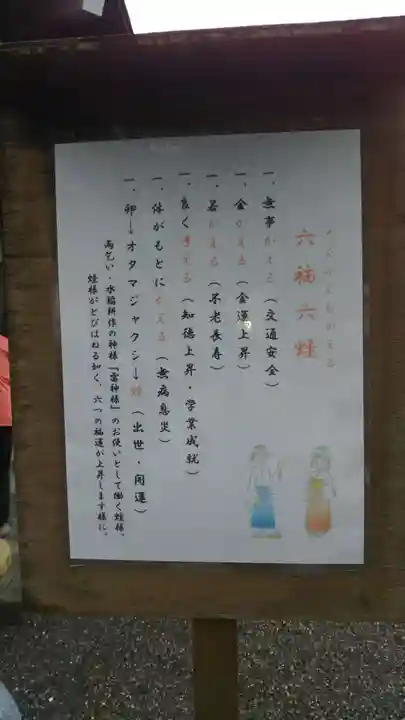 六福六蛙
一．無事かえる（交通安全）
一．金かえる（金運上昇）
一．若がえる（不老長寿）
一．良く考える（知徳上昇・学業成就）
一．体がもとにかえる（無病息災）
一．卵ーオタマジャクシー蛙（出世・開運）
雨乞い・水稲耕作の神様『雷神様』のお使いとして働く蛙様。
蛙様がとびはねる如く、六つの福運が上昇します様に。